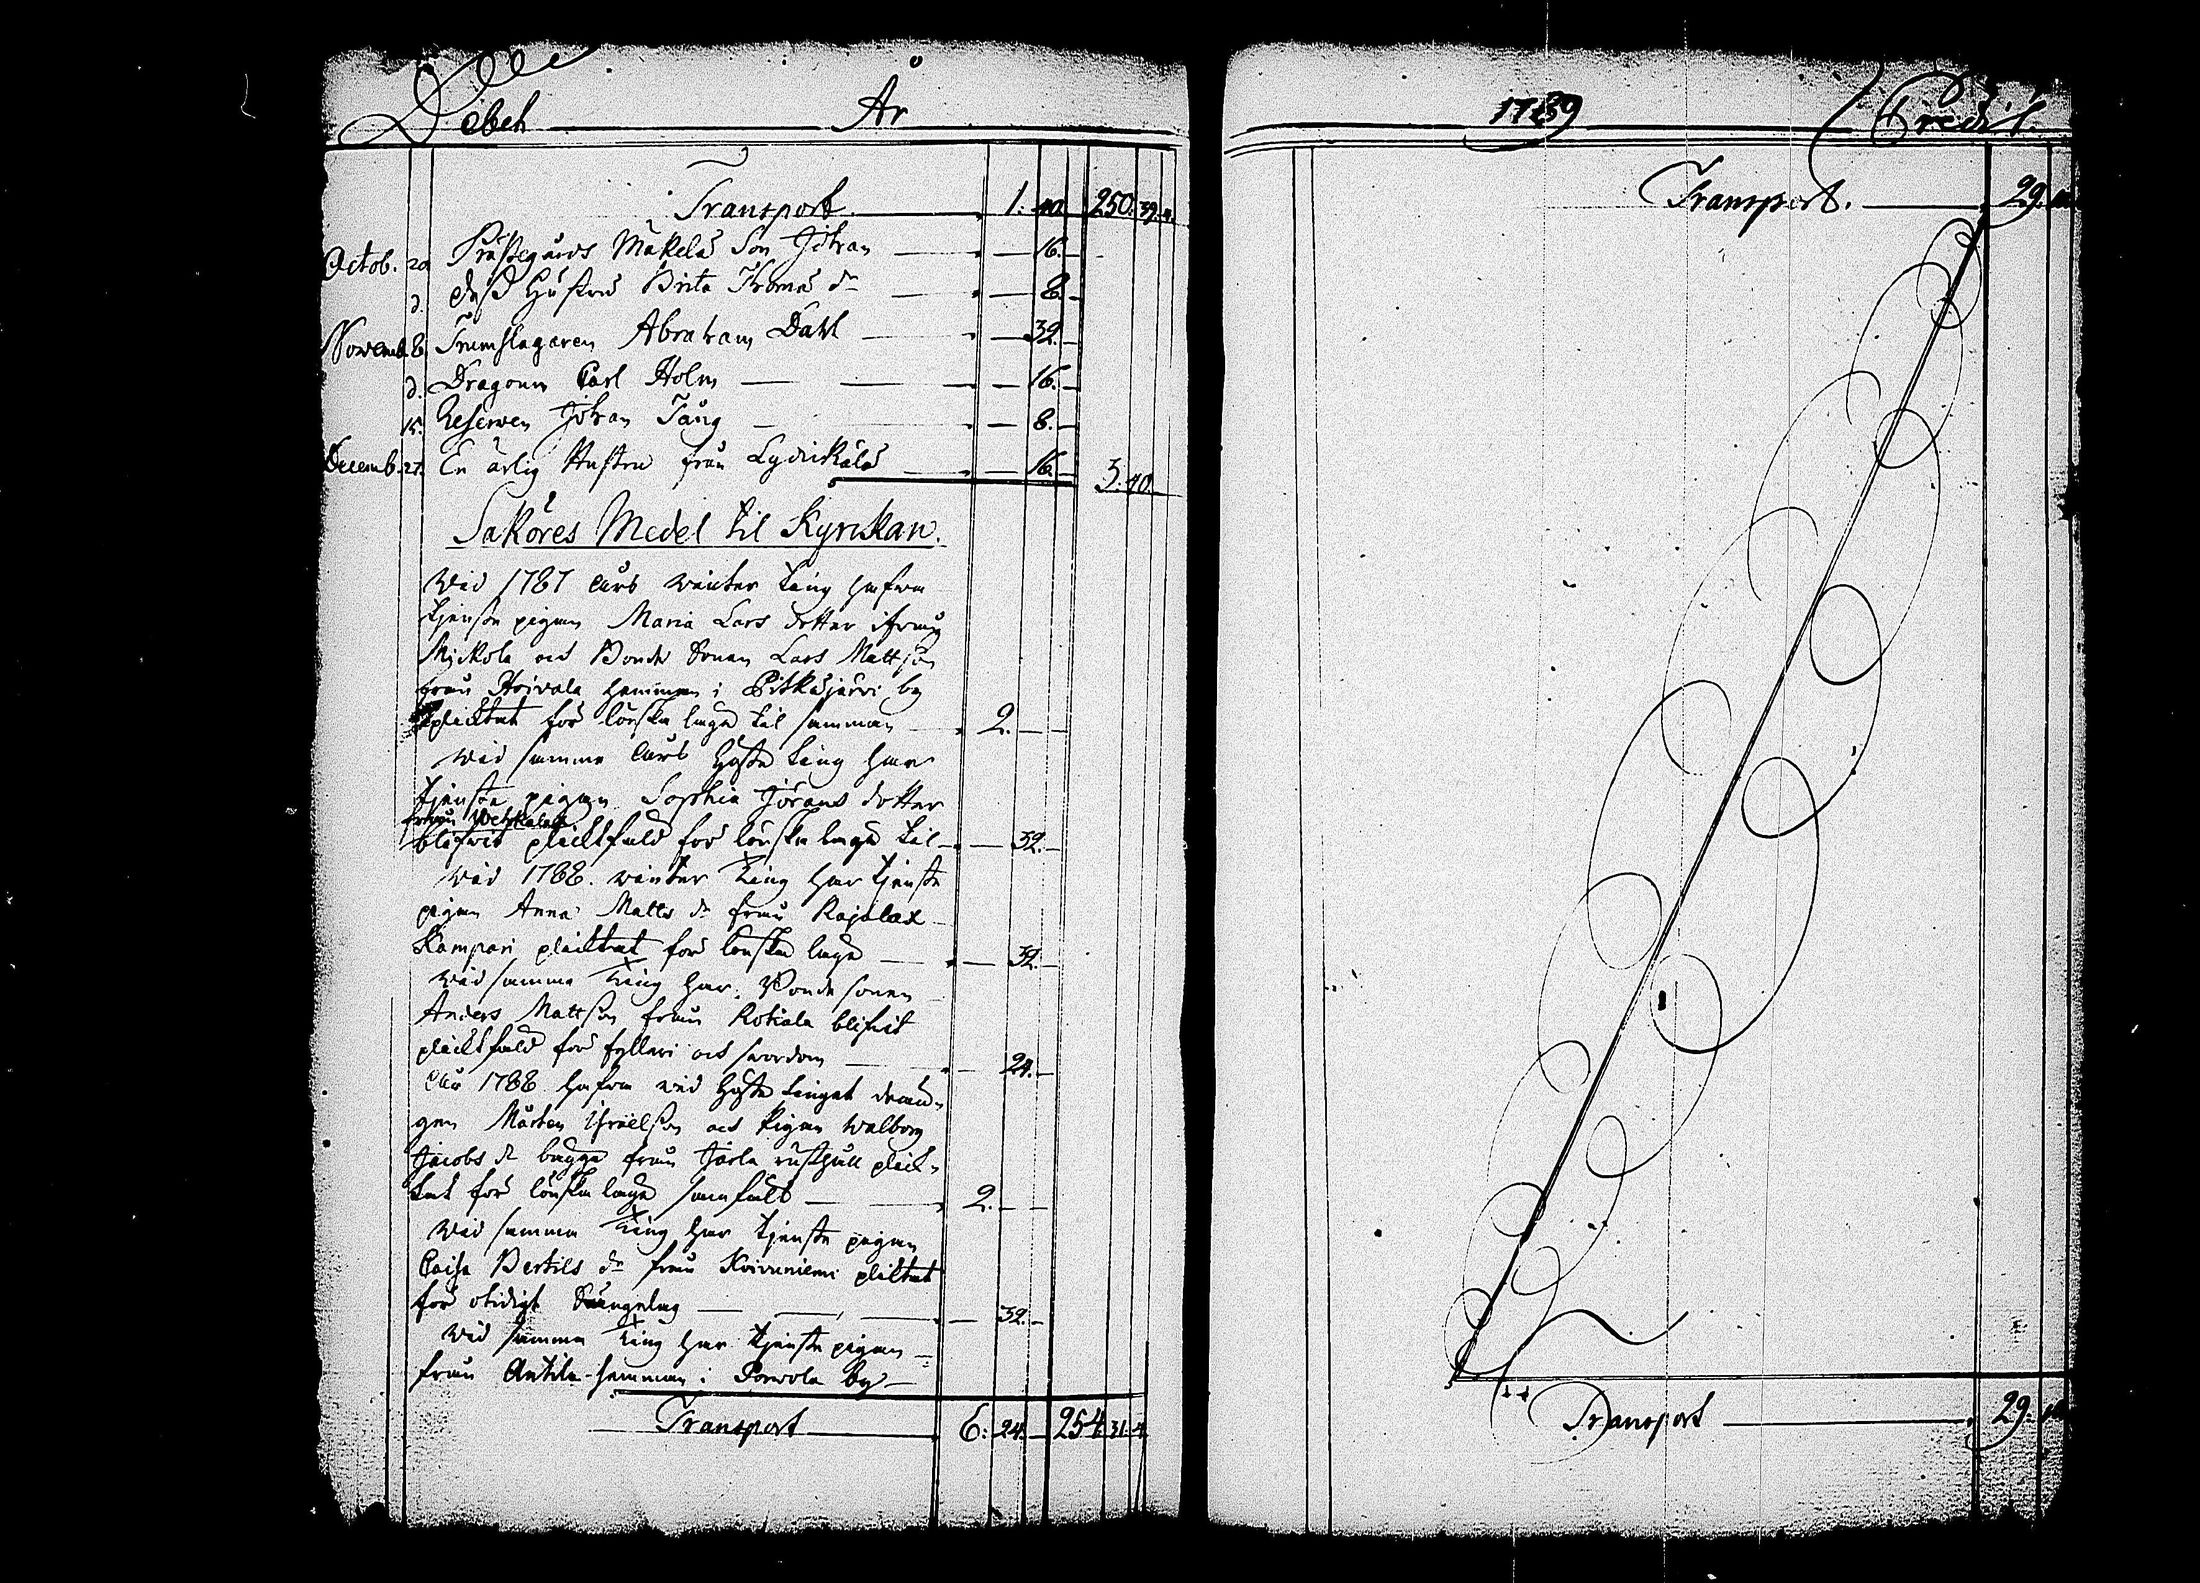 Debet År
Transport 1: 40. 250: 39. 4.
Octob. 20 Prästegårds Mäkelä Son Johan 16.
d. dess Hustru Brita Thomas dr 8.
Novemb. 8. Trumslagaren Abraham Dahl 32.
d. Dragoun Carl Holm 16.
15. Reserven Johan Tång 8.
Decemb. 27. En ärlig Hustru från Lydikälä 16. 3: 40.
Saköres Medel til Kyrckan.
Wid 1787 Års winter ting hafwa
tjenste pigan Maria Lars dotter ifrån
Mickola och Bonde Sonen Lars Mattson
från Hoivala hemman i Pitkäjärvi by
plicktat för lönska läge til samman 2.
Wid samma Års Höste ting har
tjenste pigan Sophia Jörans dotter
från
blifwit plicktfäld för lönska läge til 32.
Wid 1788. winter Ting har tjenste
pigan Anna Matts dr från Rajalax
Kampari plicktat för lönska läge 32.
Wid samma Ting har Bonde sonen
Anders Mattson från Rotiala blifwit
plicktfäld för fylleri och swordom 24.
År 1788 hafwa wid Höste tinget drän-
gen Mårten Israelson och Pigan Walborg
Jacobs dr bägge från Järla rusthåll plick-
tat för lönska läge samfält 2.
Wid samma Ting har tjenste pigan
Caisa Bertils dr från Koivuniemi plicktat
för otidigt Sängelag 32.
Wid samma Ting har tjenste pigan
från Antila hemman i Porvola by
Transport 6: 24. 254. 31. 4.
1789 Credit.
Transport. 29.
Transport 29.